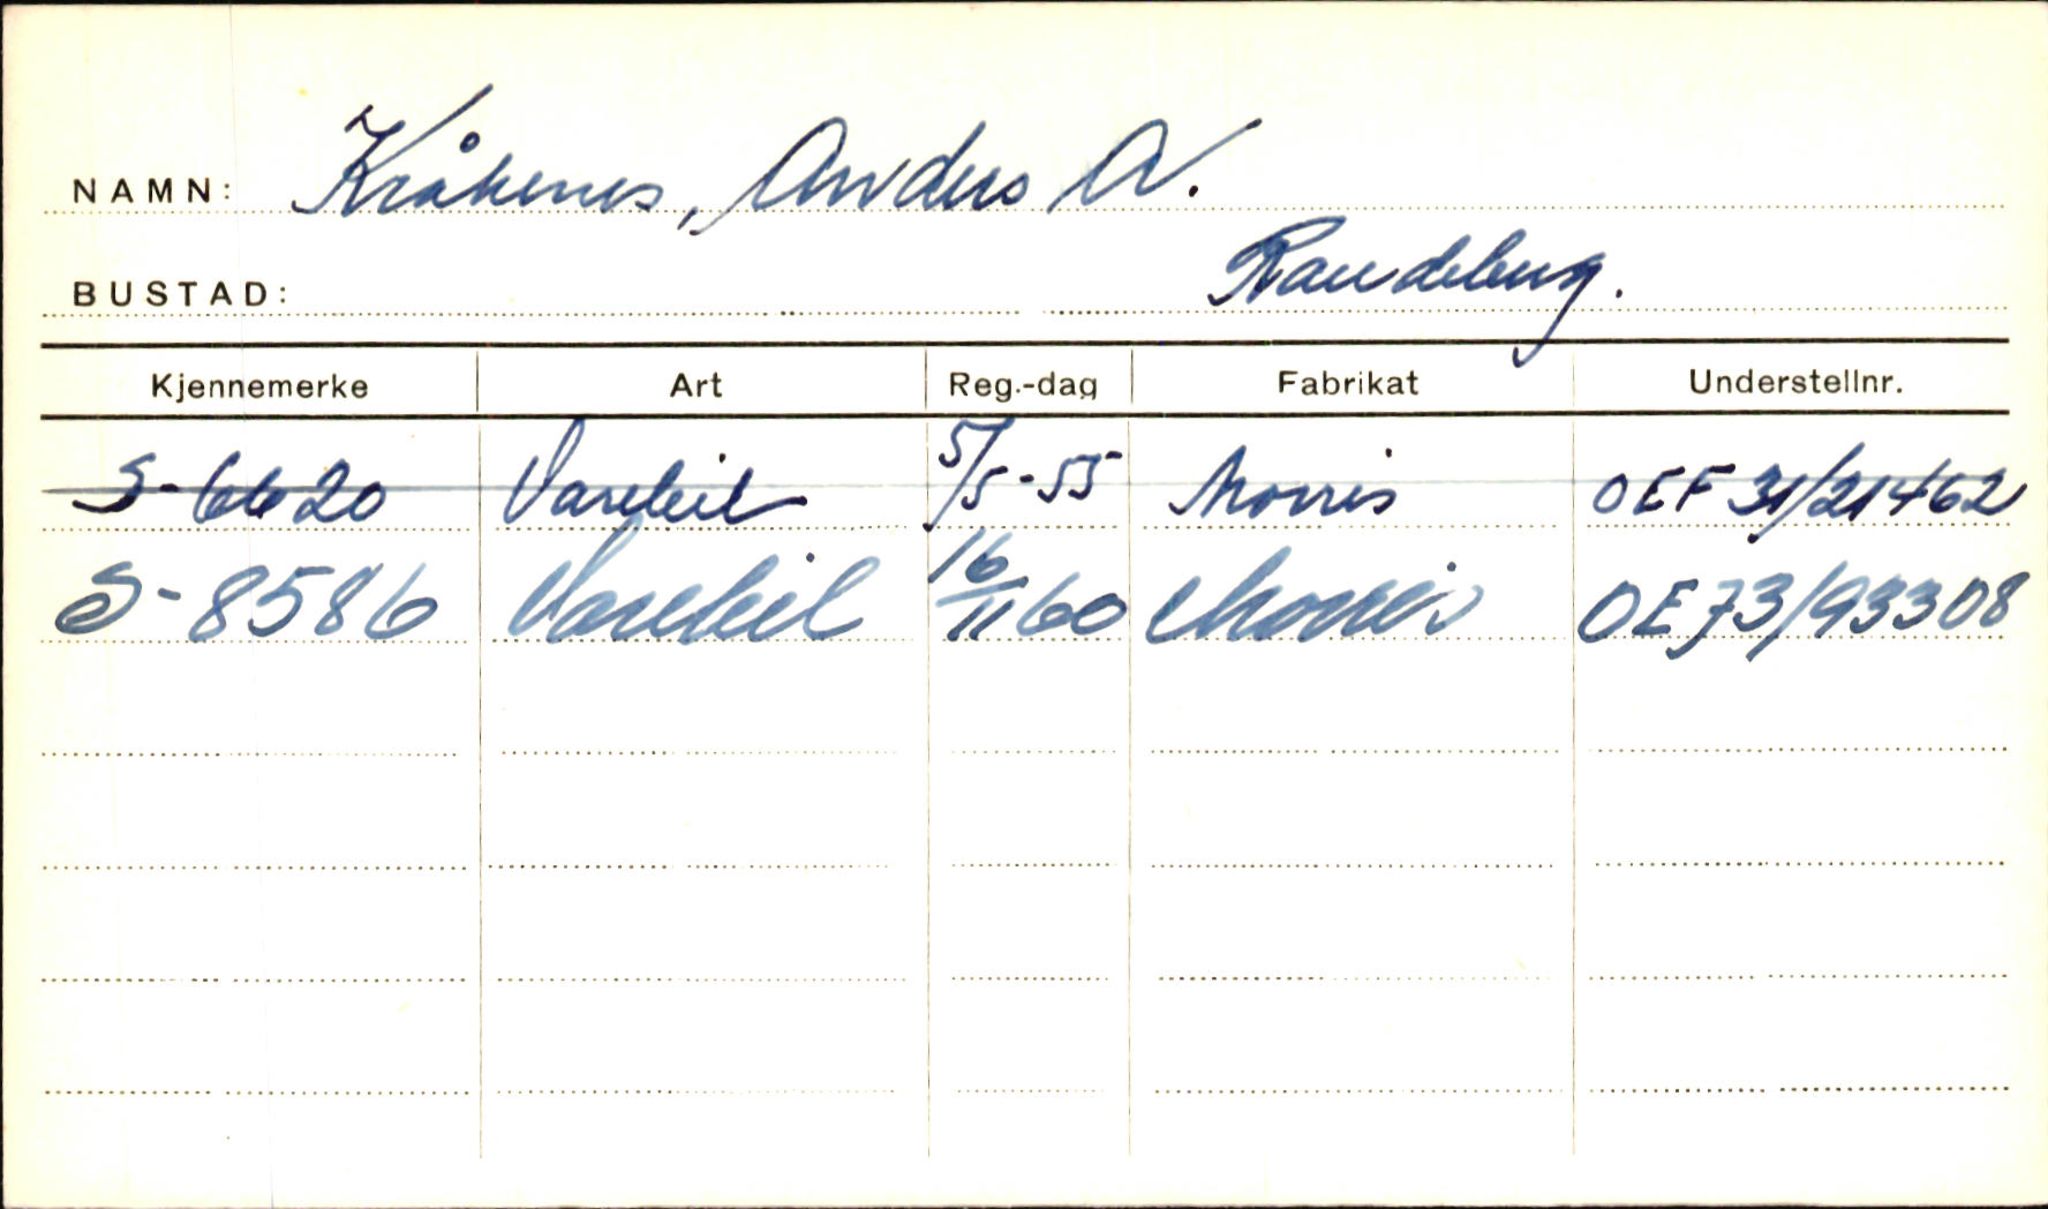 NAMN: Kråkenes, Anders A.
BUSTAD: Raudeberg.
Kjennemerke Art Reg.-dag Fabrikat Understellnr.
S-6620 Varebil 5/5-55 Morris OEF 31/21462
S-8586 Varebil 16/11 60 Morris OE73/93308